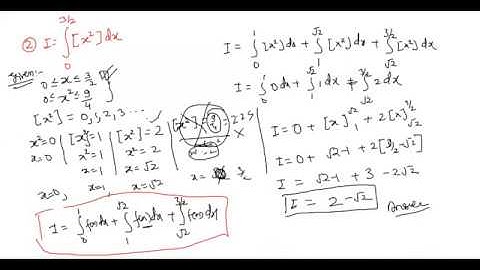 ② I = ∫₀^{3/2} [x²] dx
Given:-
0 ≤ x ≤ 3/2
0 ≤ x² ≤ 9/4
[x²] = 0, 1, 2, 3 ...
x² = 0 | [x²] = 1 | [x²] = 2 | [x²] = 9/4 = 2.25
x = 0 | x² = 1 | x² = 2 | ×
x = 1 | x = √2 | x = 3/2
x = 0, x = 1, x = √2
I = ∫₀¹ f(x) dx + ∫₁^{√2} f(x) dx + ∫_{√2}^{3/2} f(x) dx
I = ∫₀¹ [x²] dx + ∫₁^{√2} [x²] dx + ∫_{√2}^{3/2} [x²] dx
I = ∫₀¹ 0 dx + ∫₁^{√2} 1 dx + ∫_{√2}^{3/2} 2 dx
I = 0 + [x]₁^{√2} + 2[x]_{√2}^{3/2}
I = 0 + √2 - 1 + 2[3/2 - √2]
I = √2 - 1 + 3 - 2√2
I = 2 - √2
Answer